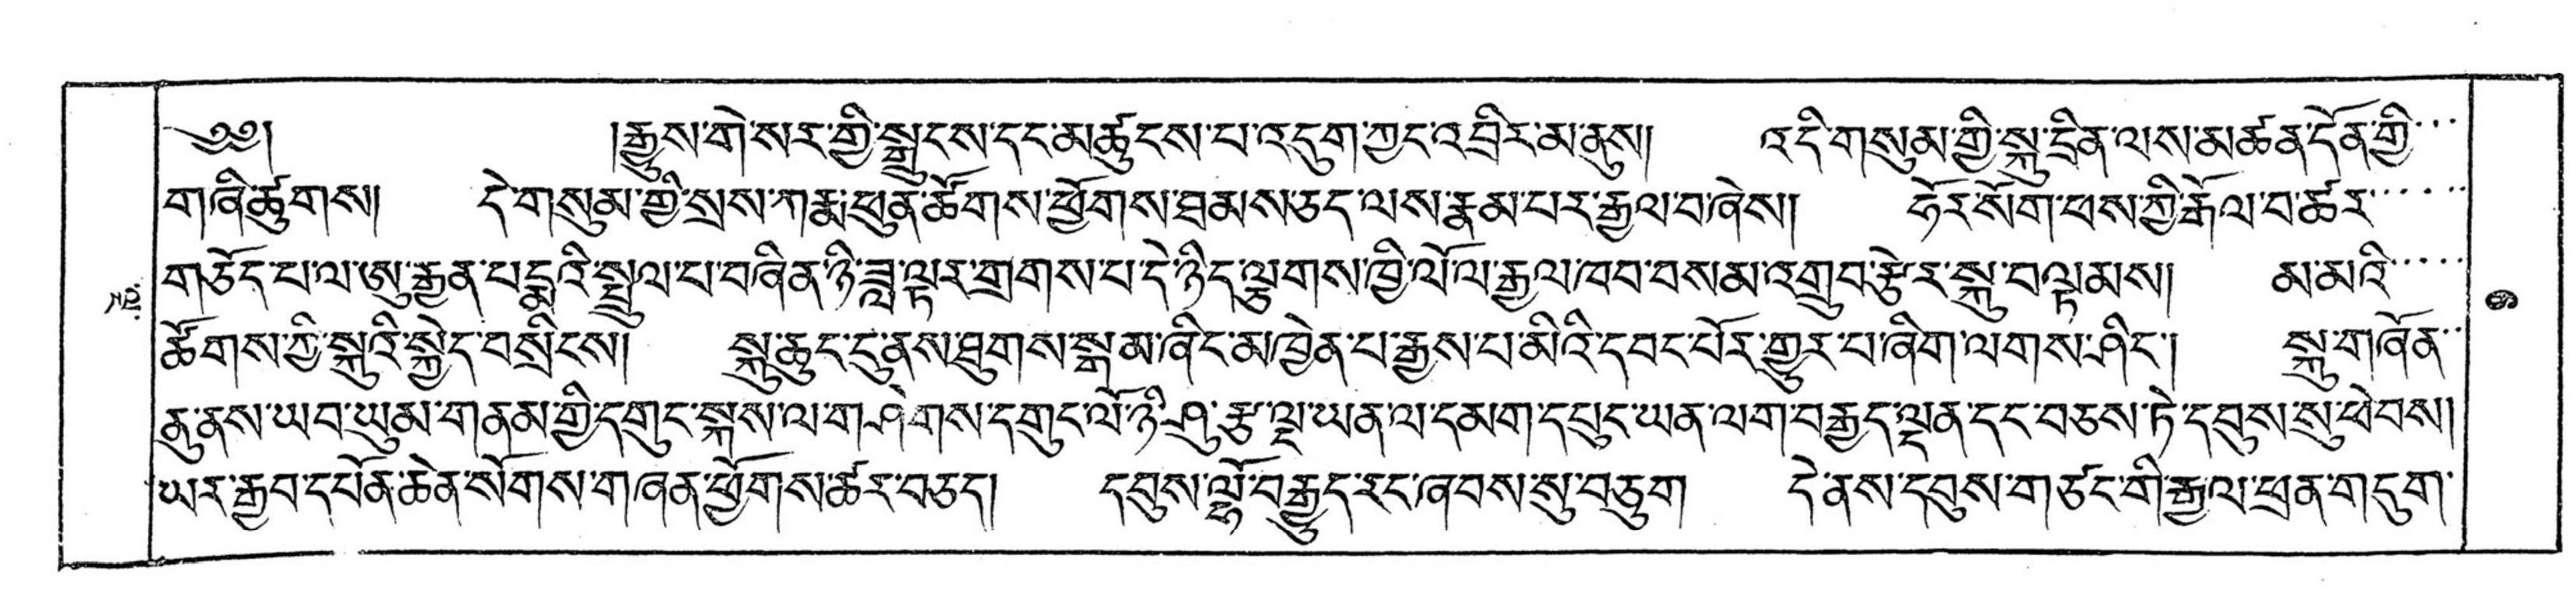 ༄༅། །རྒྱུས་གེ་སར་གྱི་སྒྲུངས་དང་མཚུངས་པ་འདུག་ཀྱང་འབྲིར་མ་ནུས། འདི་གསུམ་གྱི་སྐུ་དྲིན་ལས་མཚན་དོན་གྱི
གཞི་ཚུགས། དེ་གསུམ་གྱི་སྲས་ཀརྨ་ཕུན་ཚོགས་ཕྱོགས་ཐམས་ཅད་ལས་རྣམ་པར་རྒྱལ་བ་ཞེས། ཧོར་སོག་ཕས་ཀྱི་རྒོལ་བ་ཚར
གཅོད་པ་ལ་ཨུ་རྒྱན་པདྨའི་སྤྲུལ་པ་བཞིན་ཉི་ཟླ་ལྟར་གྲགས་པ་དེ་ཉིད་ལྕགས་ཁྱི་ལོ་ལ་རྒྱལ་ཁབ་བསམ་འགྲུབ་རྩེར་སྐུ་བལྟམས། མ་མའི
ཚོགས་ཀྱི་སྐུའི་སྐྱེད་བསྲིངས། སྐུ་ཆུང་ངུ་ནས་ཐུགས་སྒམ་ཞིང་མཁྱེན་པ་རྒྱས་པ་མིའི་དབང་པོར་གྱུར་པ་ཞིག་ལགས་ཤིང་། སྐུ་གཞོན
ནུ་ནས་ཡབ་ཡུམ་གནམ་གྱི་དགུང་སྐས་ལ་གཤེགས་དགུང་ལོ་ཉི་ཤུ་རྩ་ལྔ་ཡན་ལ་དམག་དཔུང་ཡན་ལག་བརྒྱད་ལྡན་དང་བཅས་ཏེ་དབུས་སུ་ཕེབས།
ཡར་རྒྱབ་དཔོན་ཆེན་སོགས་གཞན་ཕྱོགས་ཚར་བཅད། དབུས་ལྷོ་བརྒྱུད་རང་ཞབས་སུ་བཅུག དེ་ནས་དབུས་གཙང་གི་རྒྱལ་ཕྲན་གདུག་